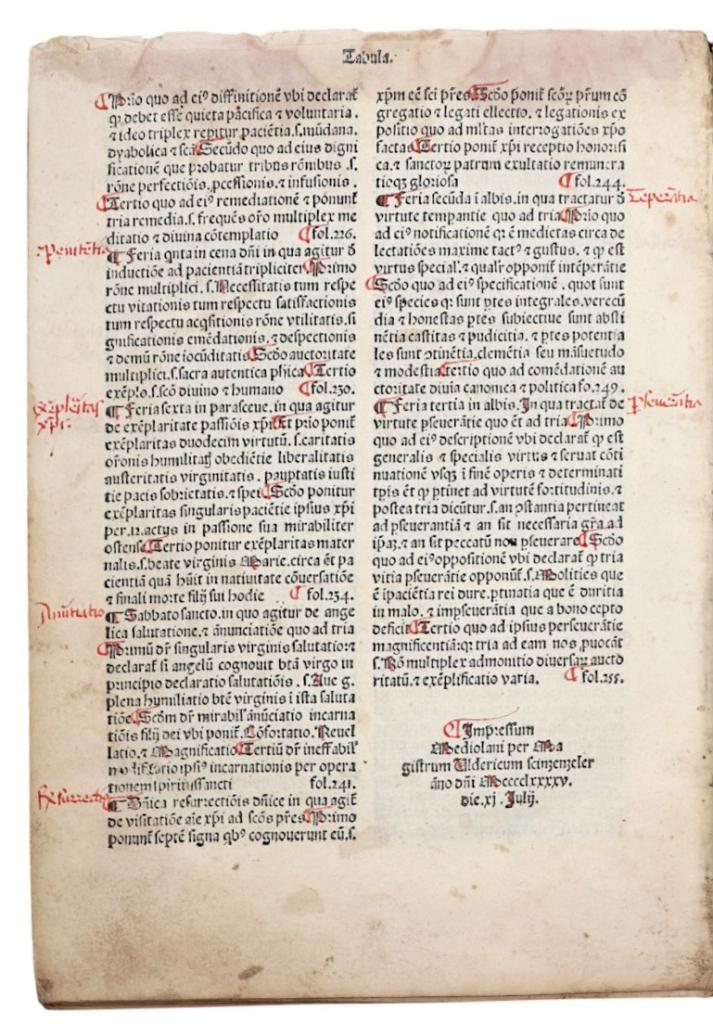 Tabula.
Prio quo ad ei⁹ diffinitionē vbi declarat̄
q̄ debet esse quieta pacifica ⁊ voluntaria.
⁊ ideo triplex repitur paciētia.s.mūdana.
dyabolica ⁊ scā Secūdo quo ad eius digni
ficationē que probatur tribus rōnibus .s.
rōne perfectiōis.pcessionis.⁊ infusionis.
Tertio quo ad ei⁹ remediationē ⁊ ponunt̄
tria remedia.s.frequēs orō multiplex me
ditatio ⁊ diuina cōtemplatio fol.226.
Feria qnta in cena dn̄i in qua agitur ð
inductiōe ad pacientiā tripliciter Primo
rōne multiplici.s.Necessitatis tum respe
ctu vitationis tum respectu satisfactionis
tum respectu acq̄sitionis rōne vtilitatis.si
gnificationis emēdationis.⁊ despectionis
⁊ demū rōne iocūditatis Scđo auctoritate
multiplici.s.sacra autentica phica Tertio
exēplo.s.scō diuino ⁊ humano fol.230.
Feria sexta in parasceue.in qua agitur
de exēplaritate passiōis xp̄i Et prio ponit̄
exēplaritas duodecim virtutū.s.caritatis
orōnis humilitat̄ obediētie liberalitatis
austeritatis virginitatis. paupertatis iusti
tie pacis sobrietatis.⁊ spei Scđo ponitur
exēplaritas singularis paciētie ipsius xp̄i
per.12.actus in passione sua mirabiliter
ostense Tertio ponitur exēplaritas mater
nalis.s.beate virginis Marie.circa ēt pa
cientiā quā hūit in natiuitate cōuersatiōe
⁊ finali morte filij sui hodie fol.234.
Sabbato sancto.in quo agitur de ange
lica salutatione.⁊ anūnciatiōe quo ad tria
Primū dr̄ singularis virginis salutatio:⁊
declarat̄ si angelū cognouit btā virgo in
principio declaratio salutatiōis .s.Aue g.
plena humiliatio btē virginis i ista saluta
tiōe Scđm dr̄ mirabil' anūciatio incarna
tiōis filij dei vbi ponit̄. Cōfortatio. Reuel
latio.⁊ Magnificatio Tertiū dr̄ ineffabil'
ipsi⁹ incarnationis per opera
tionem spiritussancti fol.241.
Dn̄ica resurrectiōis dn̄ice in qua agit̄
de visitatiōe aīe xp̄i ad scōs pr̄es Primo
ponunt̄ septē signa qb⁹ cognouerunt eū.s.
xp̄m eē sci pr̄es Scđo ponit̄ scōꝝ pr̄um cō
gregatio ⁊ legati ellectio. ⁊ legationis ex
positio quo ad mltas interrogatiōes xp̄o
factas Tertio ponit̄ xp̄i receptio honorifi
ca.⁊ sanctoꝝ patrum exultatio remunera
tioq̄ gloriosa fol.244.
Feria secūda ī albis.in qua tractatur ð
virtute temperantie quo ad tria Prio quo
ad ei⁹ notificationē q̄ ē medietas circa de
lectatiōes maxime tact⁹ ⁊ gustus. ⁊ q̄ est
virtus special'.⁊ qualr̄ opponit̄ intēperātie
Scđo quo ad ei⁹ specificationē . quot sunt
ei⁹ species q̄: sunt ptes integrales.verecū
dia ⁊ honestas ptes subiectiue sunt absti
nētia castitas ⁊ pudicitia. ⁊ ptes potentia
les sunt ↄtinētia.clemētia seu māsuetudo
⁊ modestia Tertio quo ad comēdationē au
ctoritate diuia canonica ⁊ politica fo.249.
Feria tertia in albis. In qua tractat̄ de
virtute pseuerātie quo ēt ad tria Primo
quo ad ei⁹ descriptionē vbi declarat̄ q̄ est
generalis ⁊ specialis virtus ⁊ seruat cōti
nuationē vsq̄ ī finē operis ⁊ determinati
tpis ēt q̄ ptinet ad virtutē fortitudinis.⁊
postea tria dicūtur.s.an ↄstantia pertineat
ad pseuerantiā ⁊ an sit necessaria gr̄a ad
ip̄aꝫ.⁊ an sit peccatū non pseuerare Scđo
quo ad ei⁹ oppositionē vbi declarat̄ q̄ tria
vitia pseuerātie opponūt̄.s.Molities que
ē īpaciētia rei dure.ptinatia que ē duritia
in malo. ⁊ impseuerātia que a bono cepto
deficit Tertio quo ad ipsius perseuerātie
magnificentiā:q̄: tria ad eam nos puocāt
s.Rō multiplex admonitio diuersaꝝ aucto
ritatū ⁊ exēplificatio varia. fol.255.
Impressum
Mediolani per Ma
gistrum Uldericum scinzenzeler
āno dn̄i Mcccclxxxxv.
die.xj.Julij.
penitētia
exēplaritas
xp̄i:
Anūtiatio
Resurrectio
Tēperātia
Pseuerātia